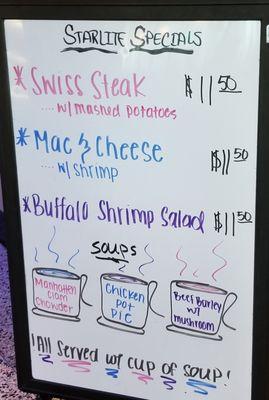 STARLITE SPECIALS
* SWISS STEAK $11.50
.... w/ MASHED POTATOES
* MAC & CHEESE $11.50
... w/ SHRIMP
* BUFFALO SHRIMP SALAD $11.50
SOUPS
MANHATTEN CLAM CHOWDER
CHICKEN POT PIE
BEEF BARLEY w/ MUSHROOM
!ALL SERVED w/ CUP OF SOUP!